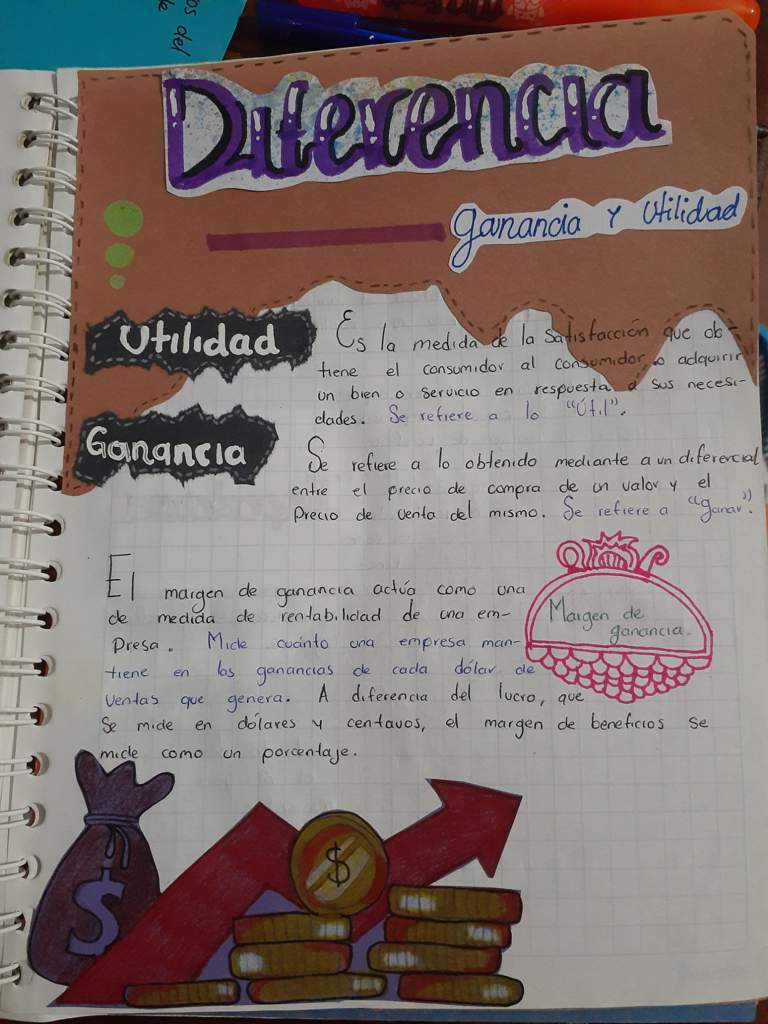 os del
de
Diferencia
Ganancia y Utilidad
Utilidad
Es la medida de la satisfacción que ob-
tiene el consumidor al consumir o adquirir
un bien o servicio en respuesta a sus necesi-
dades. Se refiere a lo "Útil".
Ganancia
Se refiere a lo obtenido mediante a un diferencial
entre el precio de compra de un valor y el
Precio de venta del mismo. Se refiere a "ganar".
Margen de
ganancia.
El margen de ganancia actúa como una
de medida de rentabilidad de una em-
Presa. Mide cuánto una empresa man-
tiene en las ganancias de cada dólar de
Ventas que genera. A diferencia del lucro, que
Se mide en dólares y centavos, el margen de beneficios se
mide como un porcentaje.
$
$